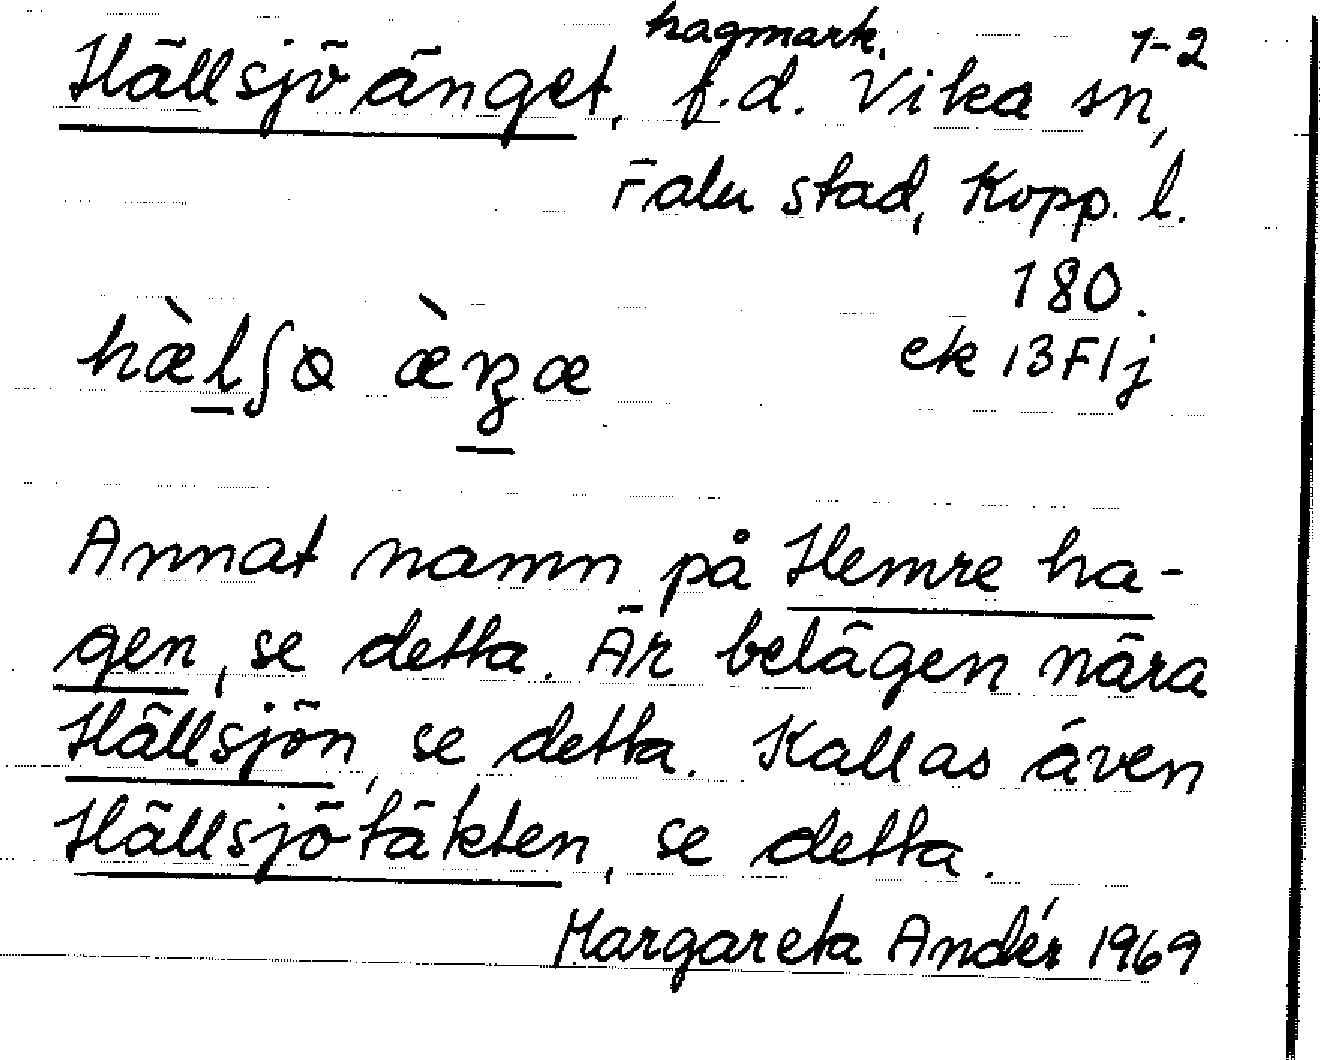 hagmark. 1-2
Hällsjöänget, f.d. Vika sn,
Falu stad, Kopp. l.
180.
hæ̀lʃɵ æ̀ŋæ ek 13F1j
Annat namn på Hemre ha-
gen, se detta. Är belägen nära
Hällsjön, se detta. Kallas även
Hällsjötäkten, se detta.
Margareta Andér 1969